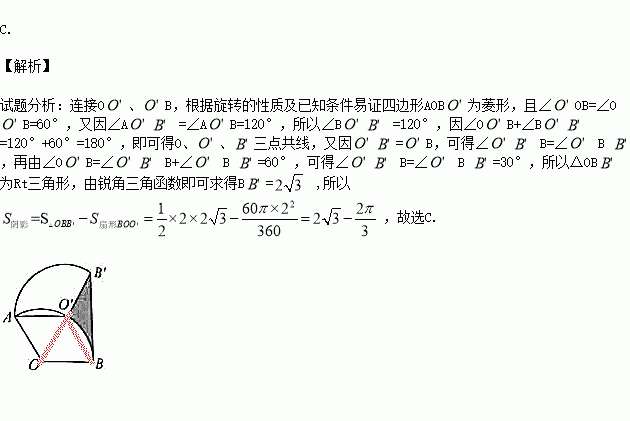 C.
【解析】
试题分析：连接OO'、O'B，根据旋转的性质及已知条件易证四边形AOBO'为菱形，且∠O'OB=∠O
O'B=60°，又因∠AO'B'=∠AO'B=120°，所以∠BO'B'=120°，因∠OO'B+∠BO'B'
=120°+60°=180°，即可得O、O'、B'三点共线，又因O'B'=O'B，可得∠O'B'B=∠O'BB'
，再由∠OO'B=∠O'B'B+∠O'BB'=60°，可得∠O'B'B=∠O'BB'=30°，所以△OBB'
为Rt三角形，由锐角三角函数即可求得BB'=2√3 ,所以
S阴影=S△OBB'-S扇形BOO'=1/2×2×2√3-60π×2²/360=2√3-2π/3，故选C.
B'
A O'
O B